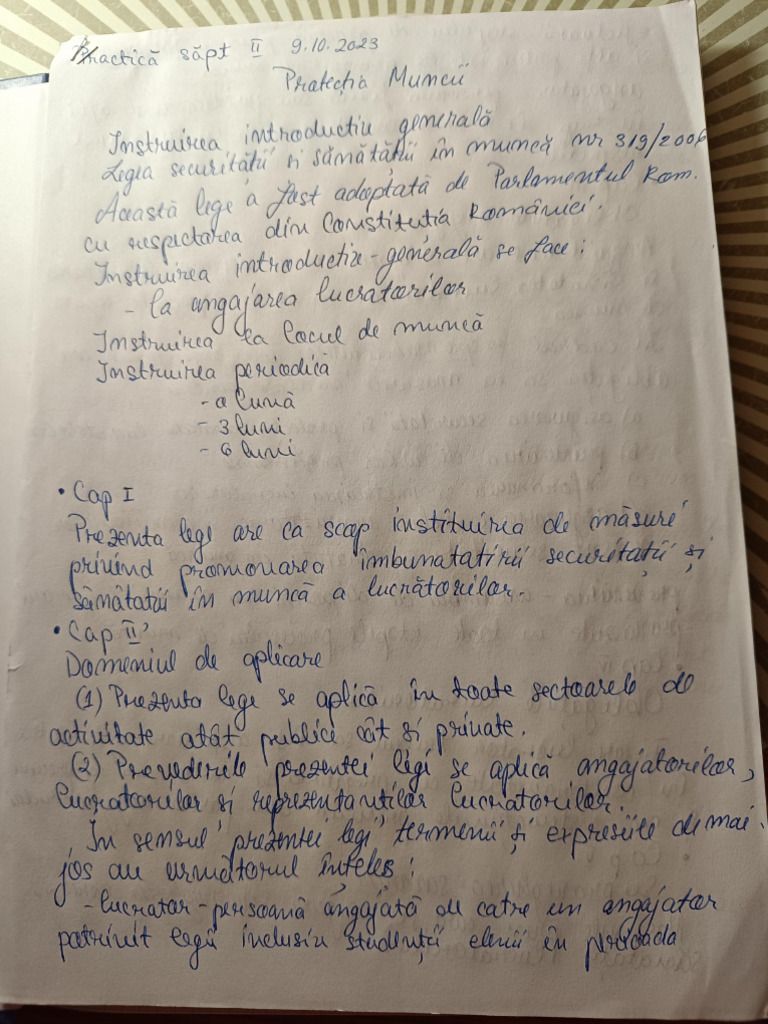 Practică săpt II 9.10.2023
Protecția Muncii
Instruirea introductiv generală
Legea securității si sămătății în muncă nr 319/2006
Această lege a fost adoptată de Parlamentul Rom.
cu respectarea din Constituția României.
Instruirea introductiv-generală se face:
- la angajarea lucratorilor
Instruirea la locul de muncă
Instruirea periodică
- o lună
- 3 luni
- 6 luni
• Cap I
Prezenta lege are ca scop instituirea de măsuri
privind promovarea îmbunatatirii securitații și
sămătatii în muncă a lucrătorilor.
• Cap II
Domeniul de aplicare
(1) Prezenta lege se aplică în toate sectoarele de
activitate atât publice cât si private.
(2) Prevederile prezentei legi se aplică angajatorilor,
lucratorilor si reprezentantilor lucratorilor.
In sensul prezentei legi termenii și expresiile de mai
jos au următorul înteles:
- lucrator - persoană angajată de catre un angajator
potrivit legii inclusiv studenții elevii în perioada